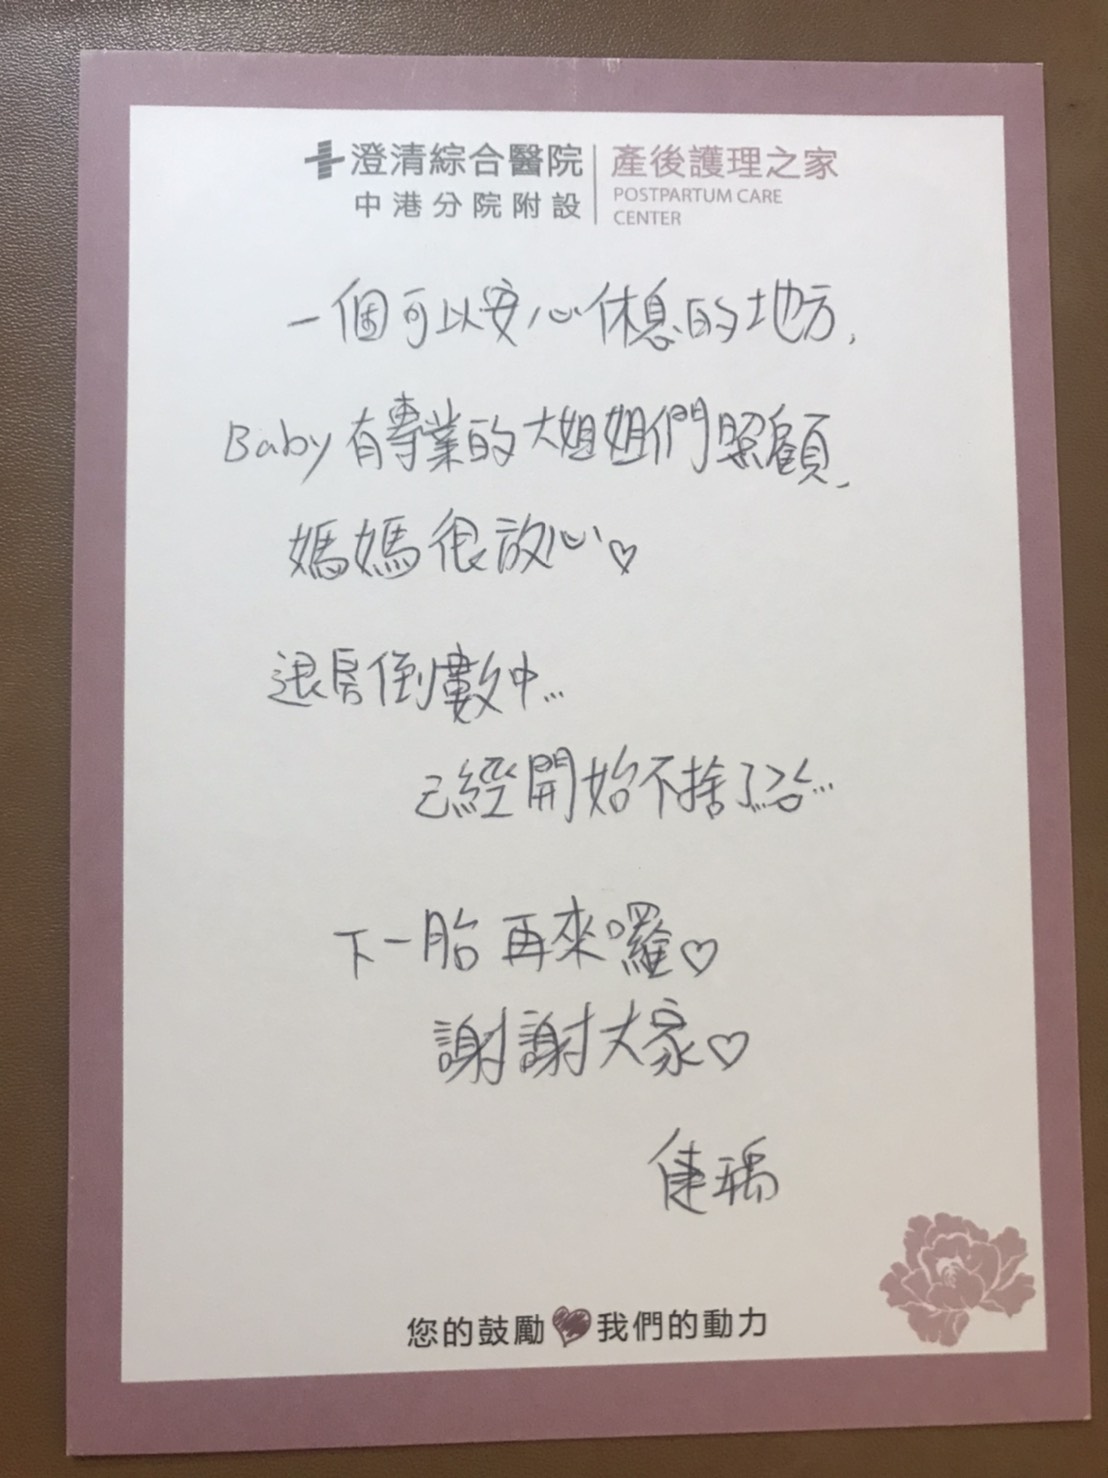 澄清綜合醫院
中港分院附設
產後護理之家
POSTPARTUM CARE
CENTER
一個可以安心休息的地方,
Baby 有專業的大姐姐們照顧,
媽媽很放心♡
退房倒數中...
已經開始不捨了...
下一胎再來囉♡
謝謝大家♡
健瑀
您的鼓勵 我們的動力